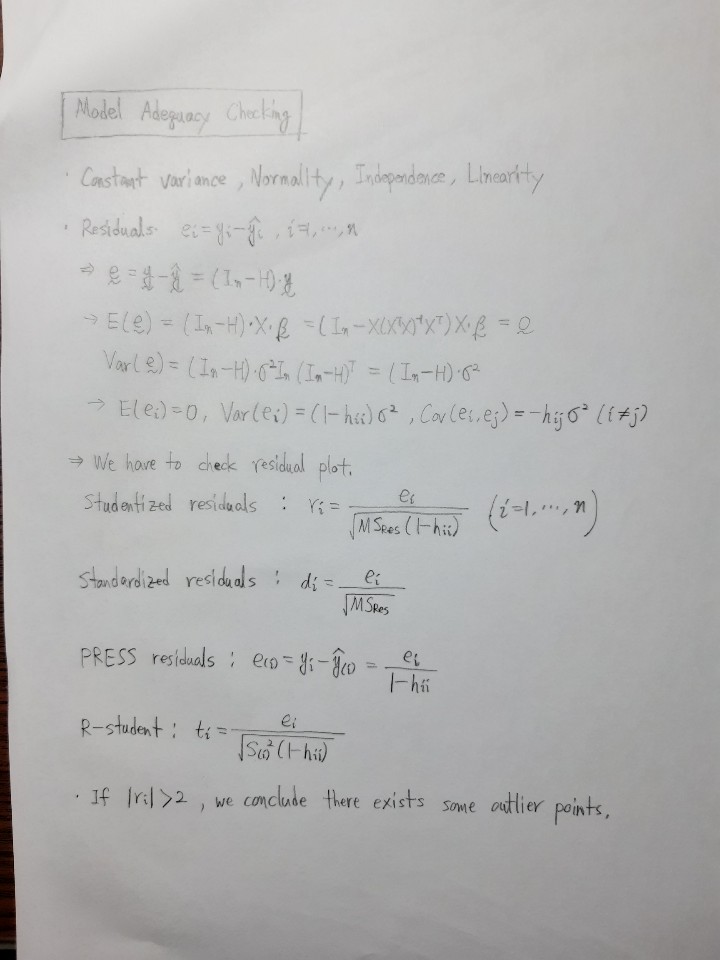 Model Adequacy Checking
· Constant variance, Normality, Independence, Linearity
· Residuals eᵢ = yᵢ - ŷᵢ , i=1, ⋯, n
⇒ ḛ = y̰ - ŷ̰ = (Iₙ-H)·y̰
→ E(ḛ) = (Iₙ-H)·X·β̰ = (Iₙ - X(XᵀX)⁻¹Xᵀ)X·β̰ = 0̰
Var(ḛ) = (Iₙ-H)·σ²Iₙ (Iₙ-H)ᵀ = (Iₙ-H)·σ²
→ E(eᵢ)=0, Var(eᵢ) = (1-hᵢᵢ)σ² , Cov(eᵢ,eⱼ) = -hᵢⱼσ² (i≠j)
⇒ We have to check residual plot.
Studentized residuals : rᵢ = eᵢ / √(MS_Res(1-hᵢᵢ)) (i=1, ⋯, n)
Standardized residuals : dᵢ = eᵢ / √(MS_Res)
PRESS residuals : e₍ᵢ₎ = yᵢ - ŷ₍ᵢ₎ = eᵢ / (1-hᵢᵢ)
R-student : tᵢ = eᵢ / √(S₍ᵢ₎²(1-hᵢᵢ))
· If |rᵢ|>2 , we conclude there exists some outlier points.